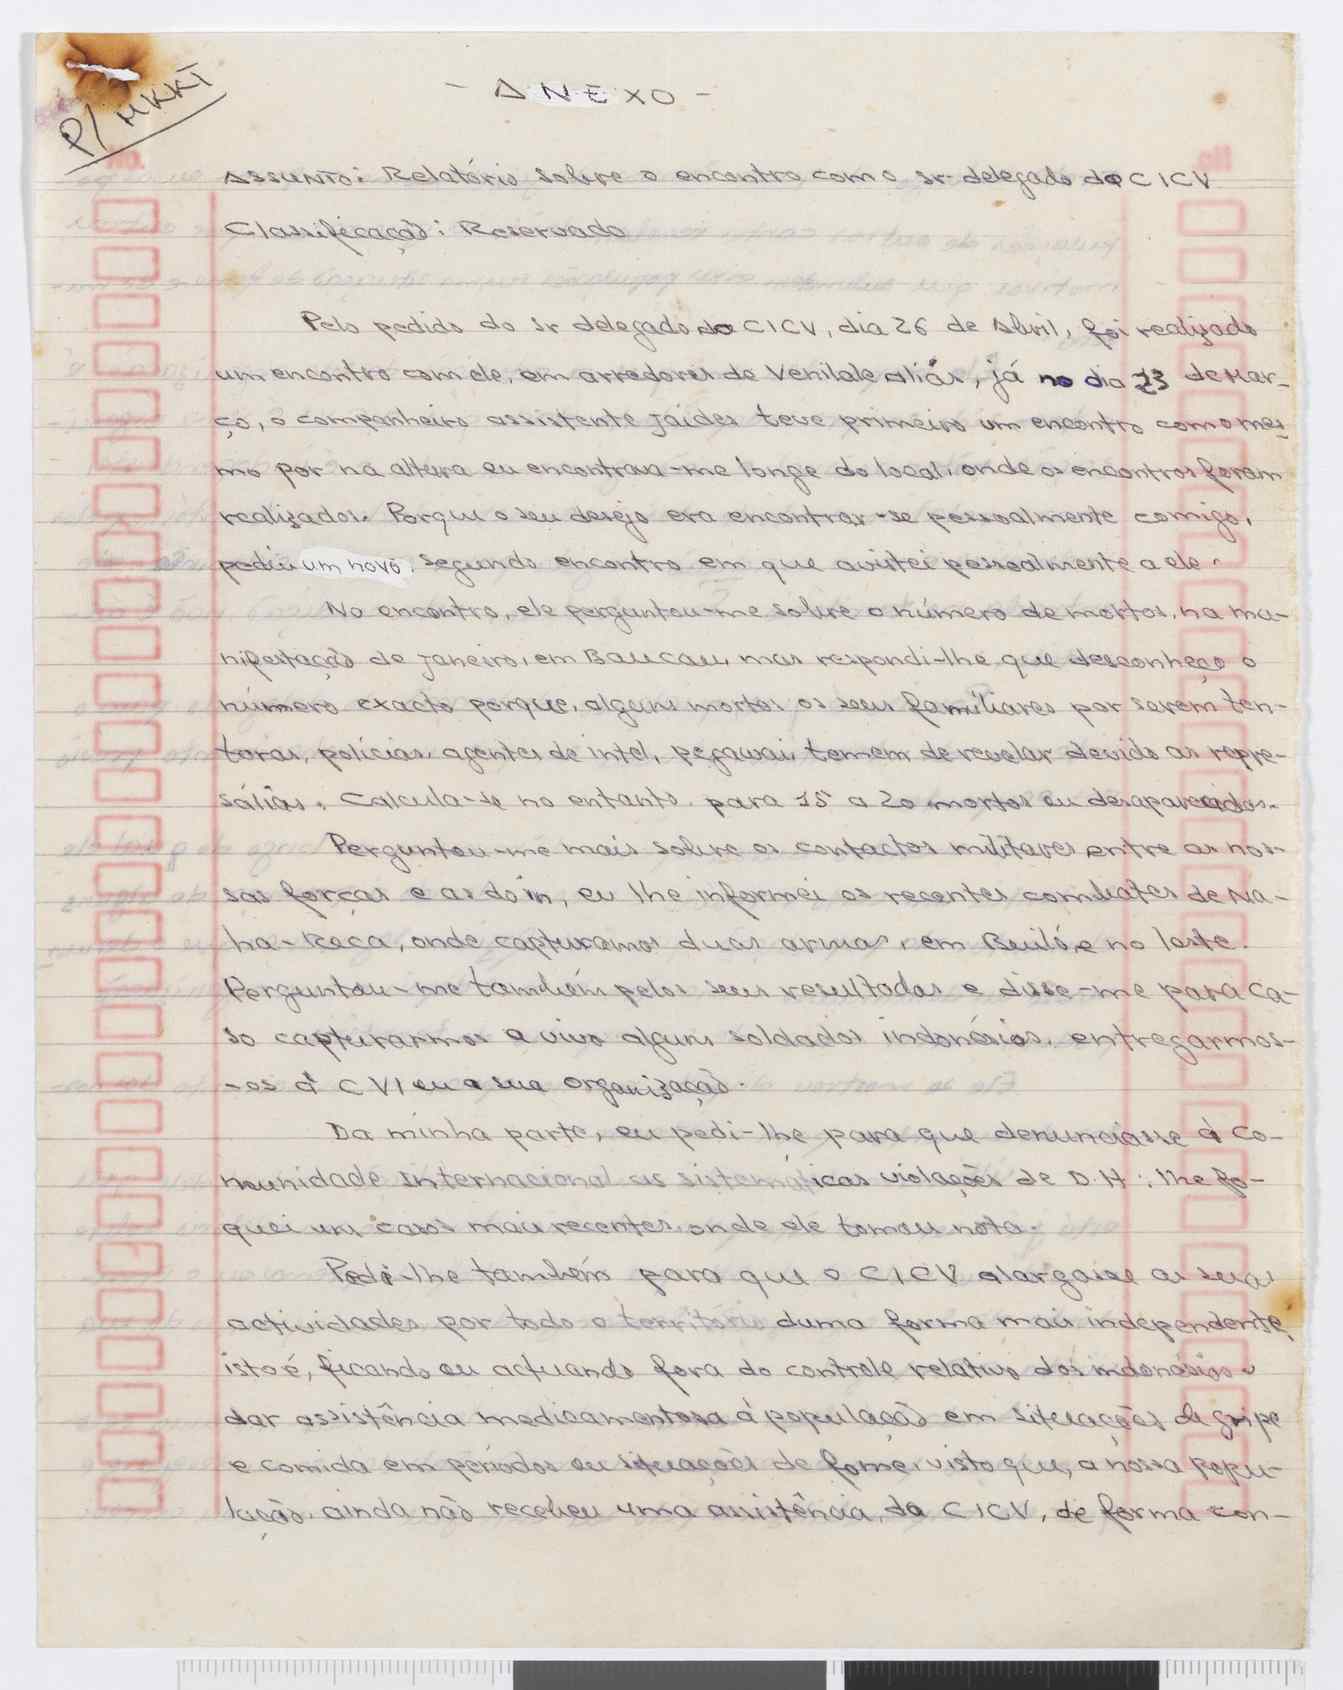 P/ MKKI
- ANEXO -
Assunto: Relatório sobre o encontro com o sr. delegado do CICV
Classificação: Reservado
Pelo pedido do sr delegado do CICV, dia 26 de Abril, foi realizado
um encontro com ele, em arredores de Venilale aliás, já no dia 23 de Mar-
ço, o companheiro assistente Jaides teve primeiro um encontro com o mes-
mo por na altura eu encontrava-me longe do local, onde os encontros foram
realizados. Porque o seu desejo era encontrar-se pessoalmente comigo,
pediu um novo, segundo encontro em que avistei pessoalmente a ele.
No encontro, ele perguntou-me sobre o número de mortos, na ma-
nifestação de Janeiro, em Baucau, mas respondi-lhe que desconheço o
número exacto porque, alguns mortos os seus familiares por serem ten-
toras, polícias, agentes de intel, pegawai, temem de revelar devido as repre-
sálias. Calcula-se no entanto para 15 a 20 mortos ou desaparecidos.
Perguntou-me mais sobre os contactos militares entre as nos-
sas forças e as do in, eu lhe informei os recentes combates de Na-
ha-Reca, onde capturamos duas armas, em Builó, e no leste.
Perguntou-me também pelos seus resultados e disse-me para ca-
so capturarmos a vivo alguns soldados indonésios, entregarmos-
-os à CVI ou a sua organização.
Da minha parte, eu pedi-lhe para que denunciasse à co-
munidade internacional as sistemáticas violações de D.H; lhe fo-
quei uns casos mais recentes, onde ele tomou nota.
Pedi-lhe também para que o CICV alargasse as suas
actividades por todo o território duma forma mais independente,
isto é, ficando ou actuando fora do controle relativo dos indonésios
dar assistência medicamentosa à população em situações de gripe
e comida em períodos ou situações de fome, visto que, a nossa popu-
lação, ainda não recebeu uma assistência, da CICV, de forma con-